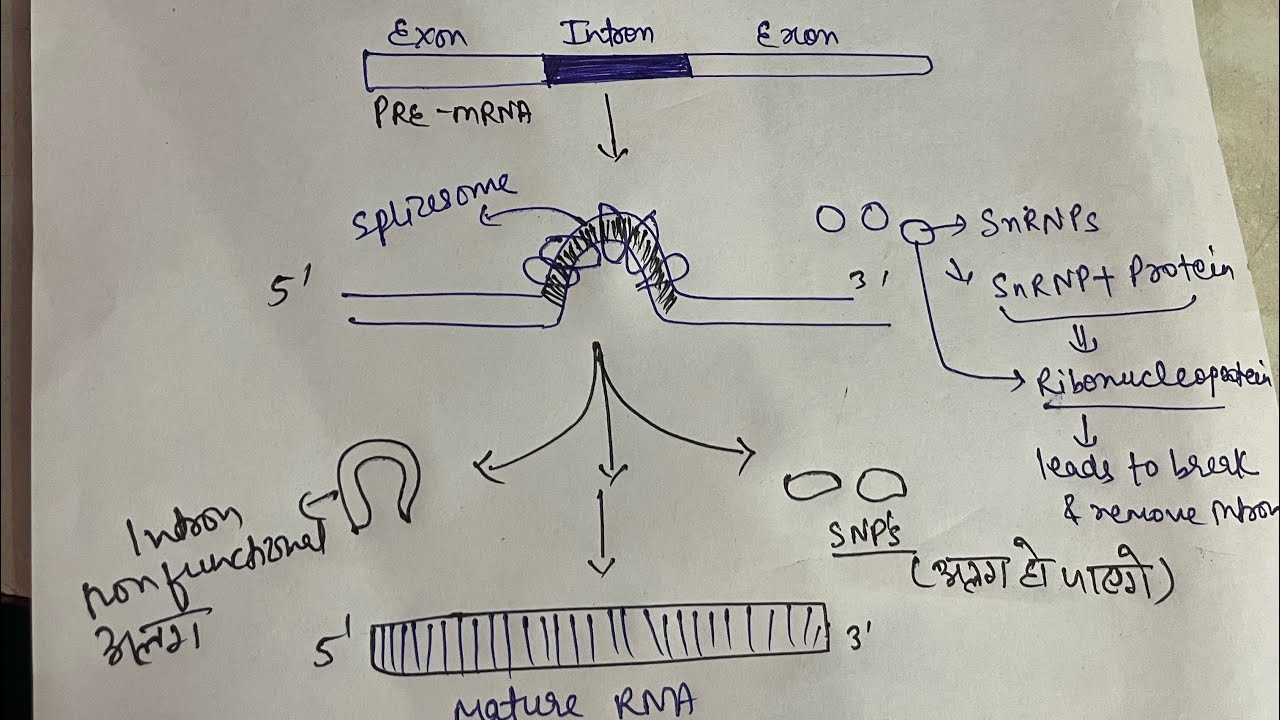 Exon Intron Exon
PRE-mRNA
Splizesome
SnRNPs
5' 3'
SnRNP + Protein
Ribonucleoprotein
leads to break
& remove Intron
Intron
nonfunctional
अलग
SNP's
(अलग हो जाएगे)
5' 3'
Mature RNA